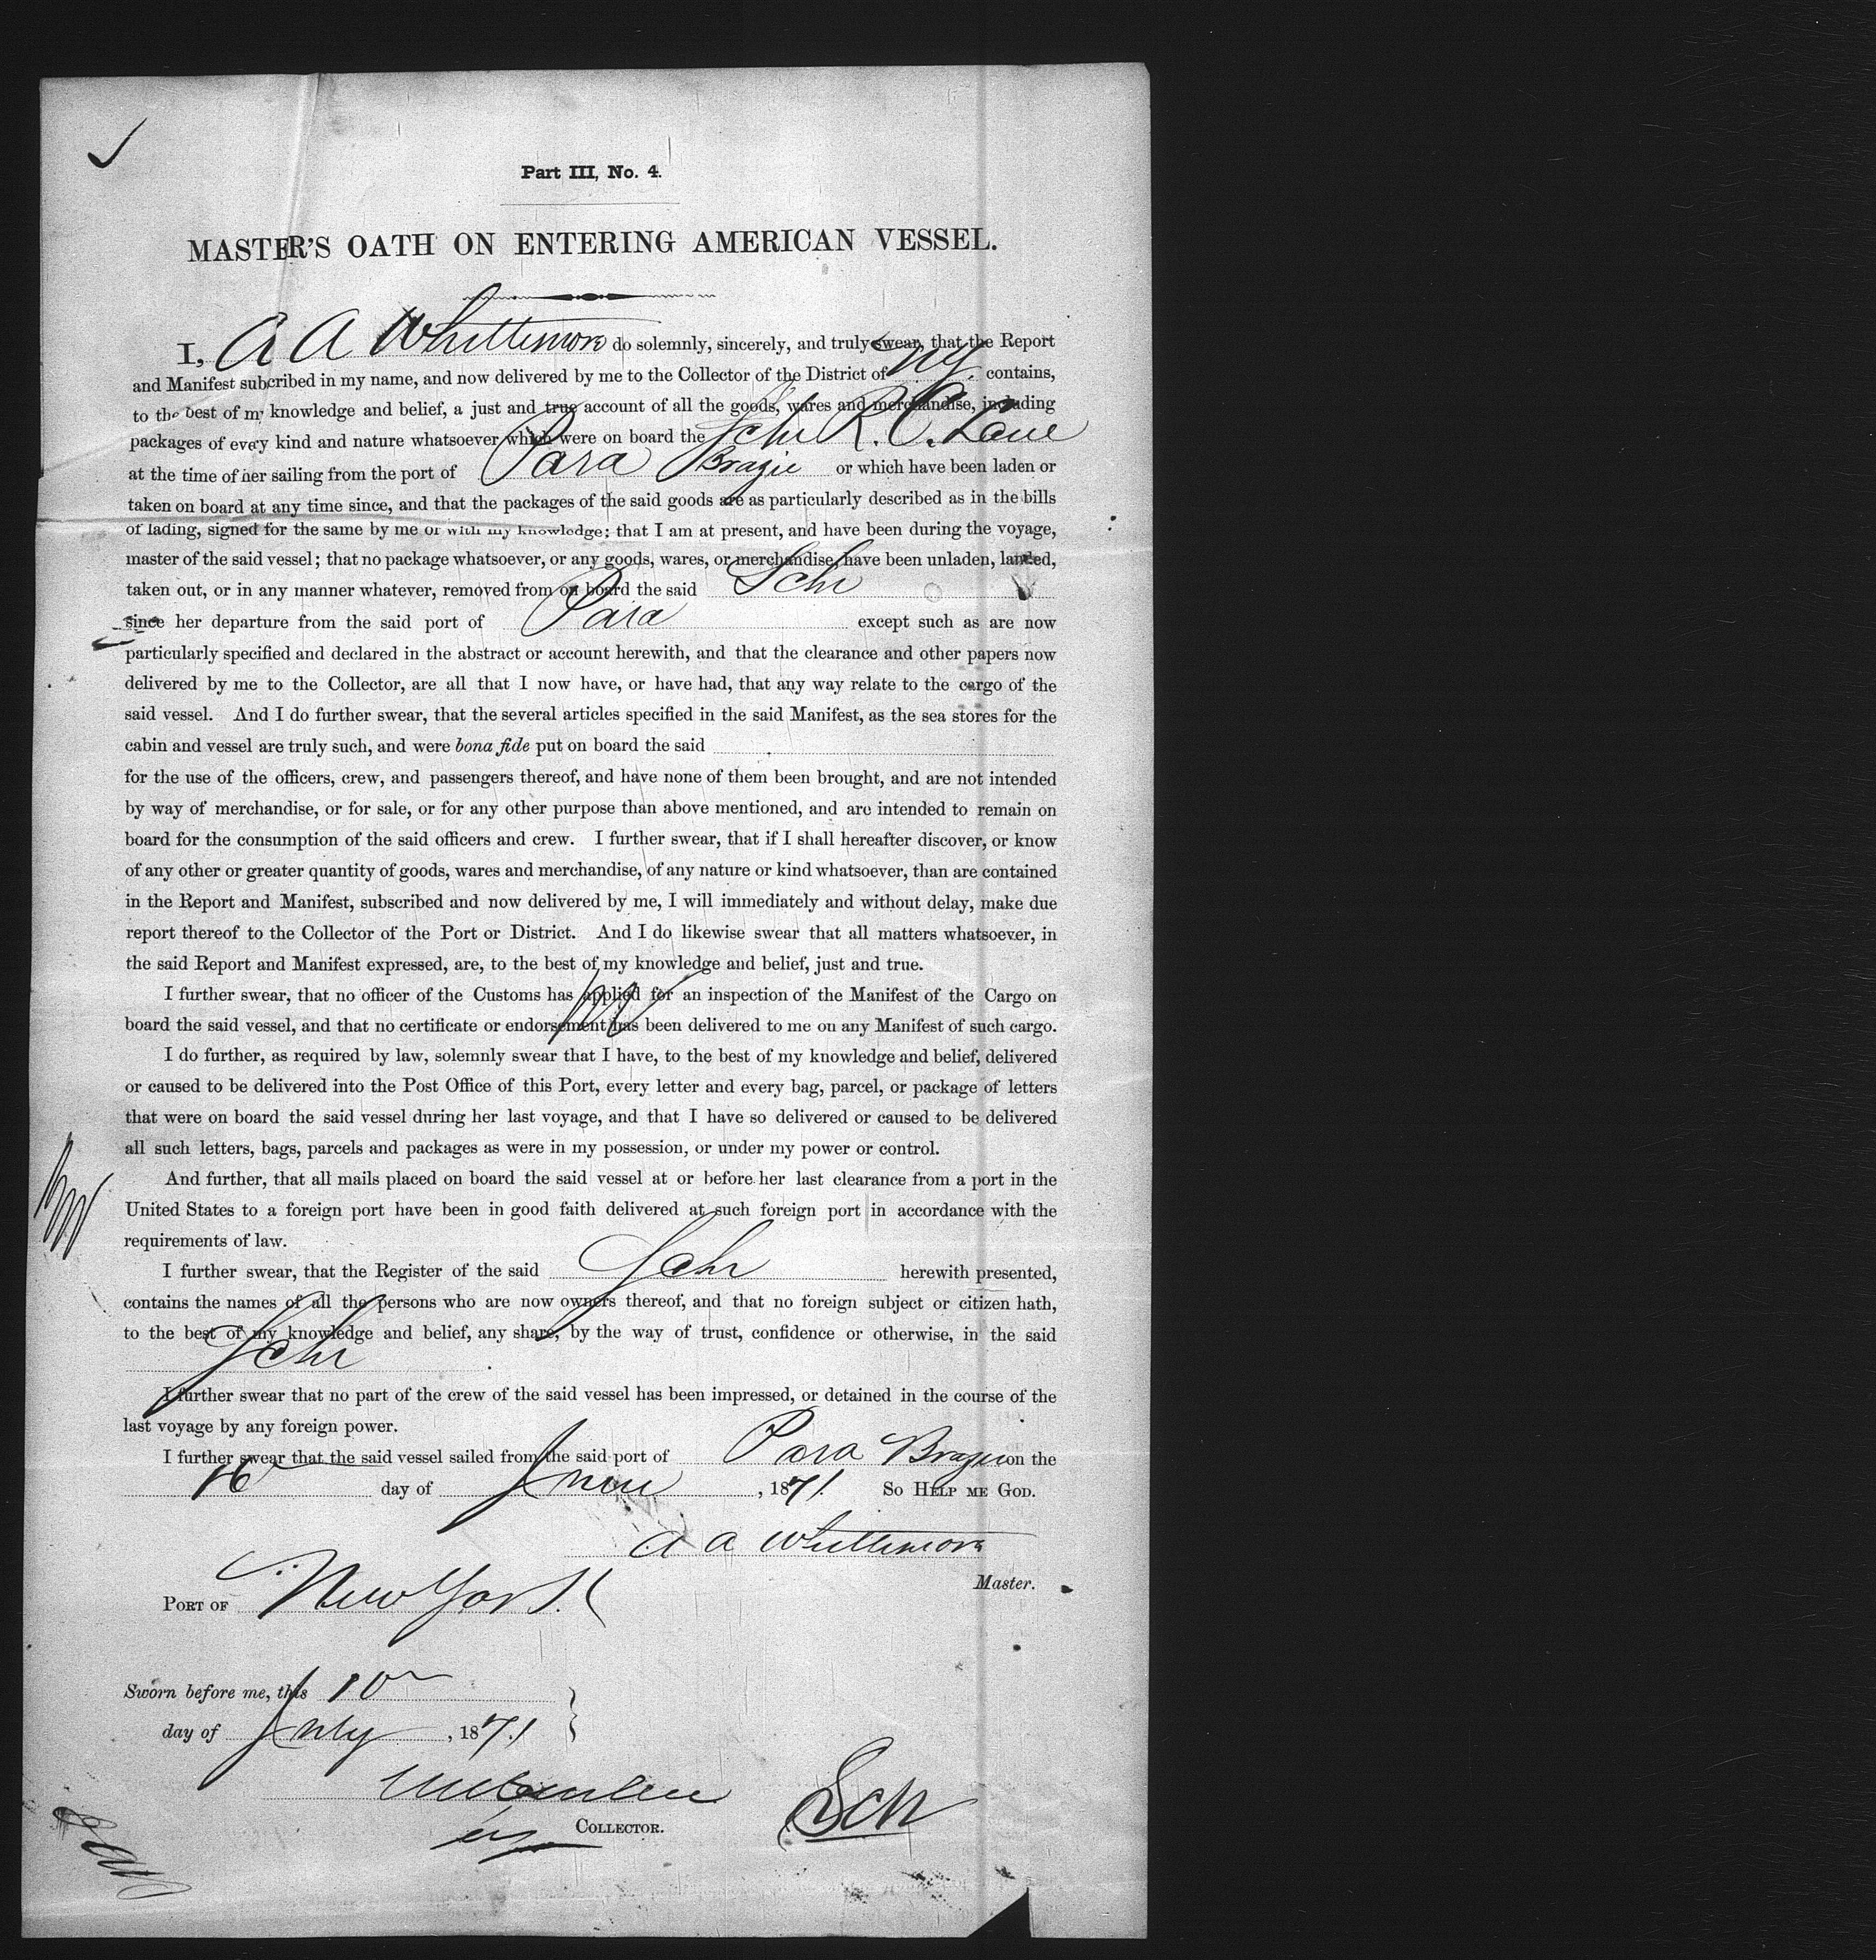 Part III, No. 4.
MASTER'S OATH ON ENTERING AMERICAN VESSEL.
I, A A Whittemore do solemnly, sincerely, and truly swear, that the Report
and Manifest subcribed in my name, and now delivered by me to the Collector of the District of NY. contains,
to the best of my knowledge and belief, a just and true account of all the goods, wares and merchandise, including
packages of every kind and nature whatsoever which were on board the Schr R. C. Lane
at the time of her sailing from the port of Para Brazil or which have been laden or
taken on board at any time since, and that the packages of the said goods are as particularly described as in the bills
of lading, signed for the same by me or with my knowledge; that I am at present, and have been during the voyage,
master of the said vessel; that no package whatsoever, or any goods, wares, or merchandise, have been unladen, landed,
taken out, or in any manner whatever, removed from on board the said Schr
since her departure from the said port of Para except such as are now
particularly specified and declared in the abstract or account herewith, and that the clearance and other papers now
delivered by me to the Collector, are all that I now have, or have had, that any way relate to the cargo of the
said vessel. And I do further swear, that the several articles specified in the said Manifest, as the sea stores for the
cabin and vessel are truly such, and were bona fide put on board the said
for the use of the officers, crew, and passengers thereof, and have none of them been brought, and are not intended
by way of merchandise, or for sale, or for any other purpose than above mentioned, and are intended to remain on
board for the consumption of the said officers and crew. I further swear, that if I shall hereafter discover, or know
of any other or greater quantity of goods, wares and merchandise, of any nature or kind whatsoever, than are contained
in the Report and Manifest, subscribed and now delivered by me, I will immediately and without delay, make due
report thereof to the Collector of the Port or District. And I do likewise swear that all matters whatsoever, in
the said Report and Manifest expressed, are, to the best of my knowledge and belief, just and true.
I further swear, that no officer of the Customs has applied for an inspection of the Manifest of the Cargo on
board the said vessel, and that no certificate or endorsement has been delivered to me on any Manifest of such cargo.
I do further, as required by law, solemnly swear that I have, to the best of my knowledge and belief, delivered
or caused to be delivered into the Post Office of this Port, every letter and every bag, parcel, or package of letters
that were on board the said vessel during her last voyage, and that I have so delivered or caused to be delivered
all such letters, bags, parcels and packages as were in my possession, or under my power or control.
And further, that all mails placed on board the said vessel at or before her last clearance from a port in the
United States to a foreign port have been in good faith delivered at such foreign port in accordance with the
requirements of law.
I further swear, that the Register of the said Schr herewith presented,
contains the names of all the persons who are now owners thereof, and that no foreign subject or citizen hath,
to the best of my knowledge and belief, any share, by the way of trust, confidence or otherwise, in the said
Schr
I further swear that no part of the crew of the said vessel has been impressed, or detained in the course of the
last voyage by any foreign power.
I further swear that the said vessel sailed from the said port of Para Brazil on the
16 day of June, 1871. So Help me God.
A A Whittemore
Master.
Port of New York
Sworn before me, this 10
day of July, 1871
Collector.
Sch